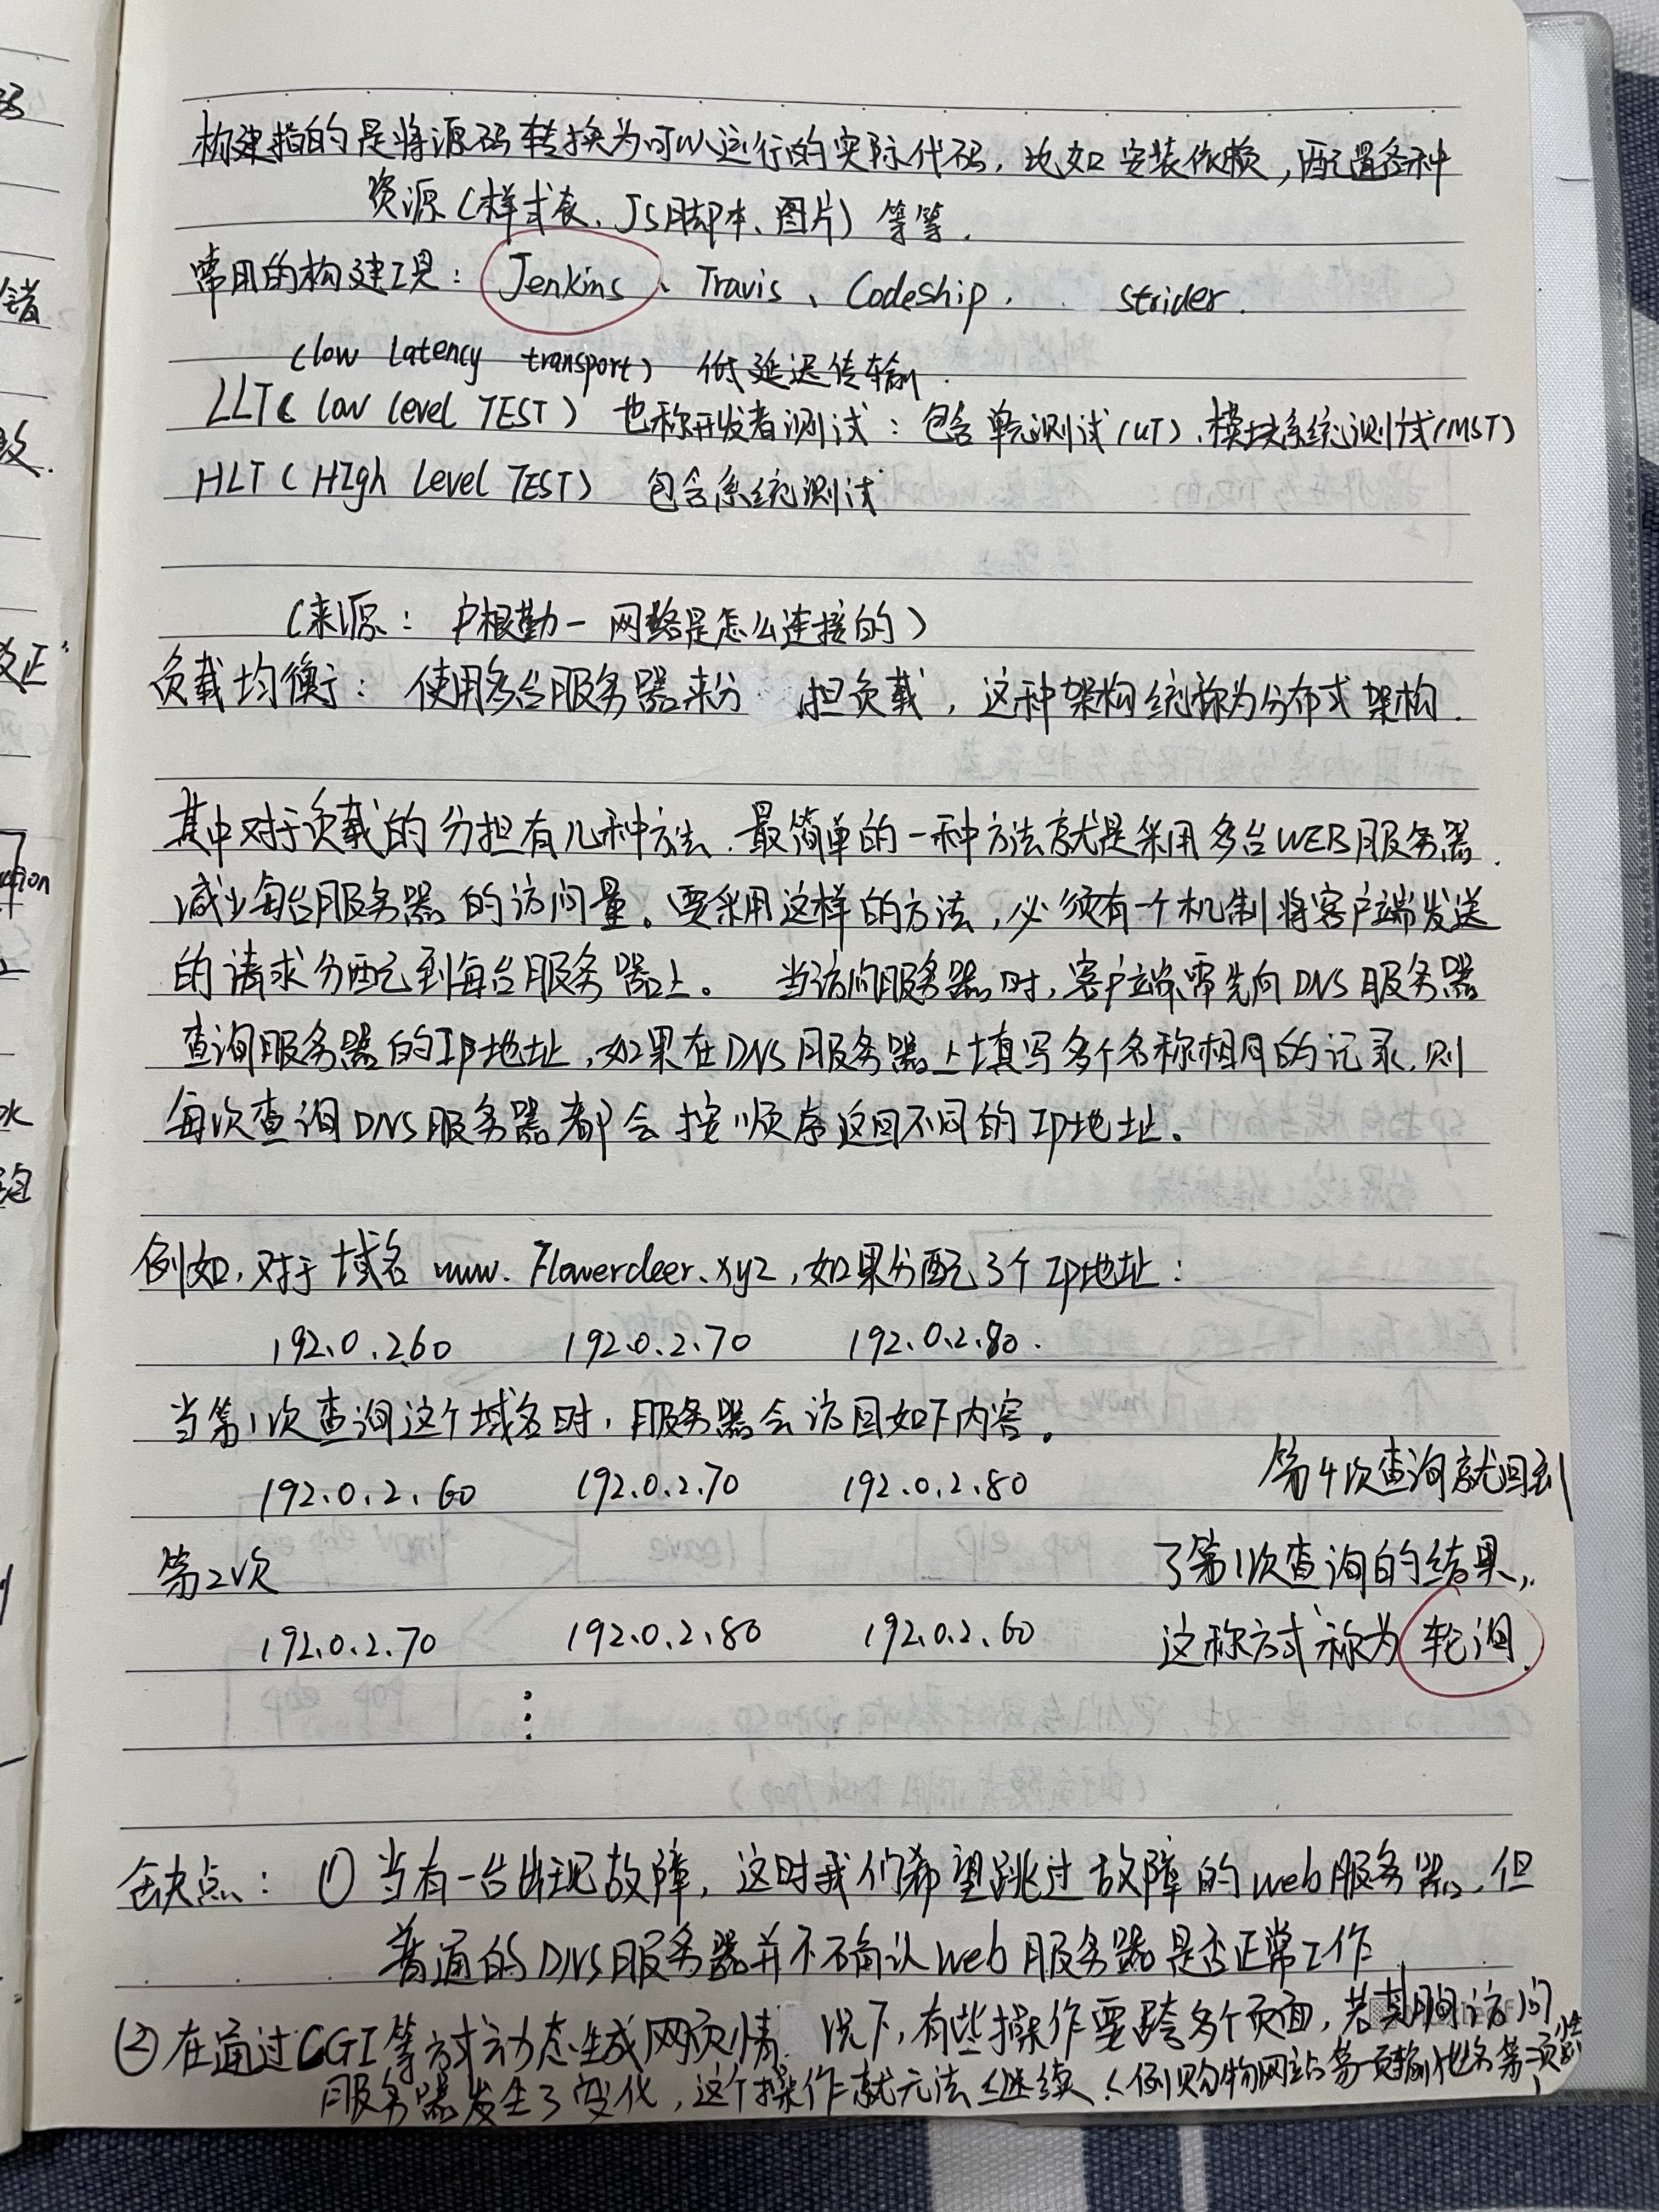 构建指的是将源码转换为可以运行的实际代码，比如安装依赖，配置各种
资源（样式表、JS脚本、图片）等等.
常用的构建工具：Jenkins、Travis、Codeship、strider.
（low latency transport）低延迟传输.
LLT（low level TEST）也称开发者测试：包含单元测试（UT）、模块系统测试（MST）
HLT（HIgh Level TEST）包含系统测试
（来源：户根勤一 网络是怎么连接的）
负载均衡：使用多台服务器来分担负载，这种架构统称为分布式架构.
其中对于负载的分担有几种方法.最简单的一种方法就是采用多台WEB服务器.
减少每台服务器的访问量。要采用这样的方法，必须有一个机制将客户端发送
的请求分配到每台服务器上。当访问服务器时，客户端需先向DNS服务器
查询服务器的IP地址，如果在DNS服务器上填写多个名称相同的记录.则
每次查询DNS服务器都会按顺序返回不同的IP地址。
例如，对于域名 www.Flowerdeer.xyz，如果分配3个Ip地址：
192.0.2.60 192.0.2.70 192.0.2.80.
当第1次查询这个域名时，服务器会访回如下内容。
192.0.2.60 192.0.2.70 192.0.2.80
第4次查询就回到
第2次
了第1次查询的结果，
192.0.2.70 192.0.2.80 192.0.2.60
这称方式称为轮询.
缺点：① 当有一台出现故障，这时我们希望跳过故障的web服务器，但
普通的DNS服务器并不确认web服务器是否正常工作.
② 在通过CGI等方式动态生成网页情况下，有些操作要跨多个页面，若其期间访问
服务器发生了变化，这个操作就无法继续.（例购物网站第一页输地址第二页